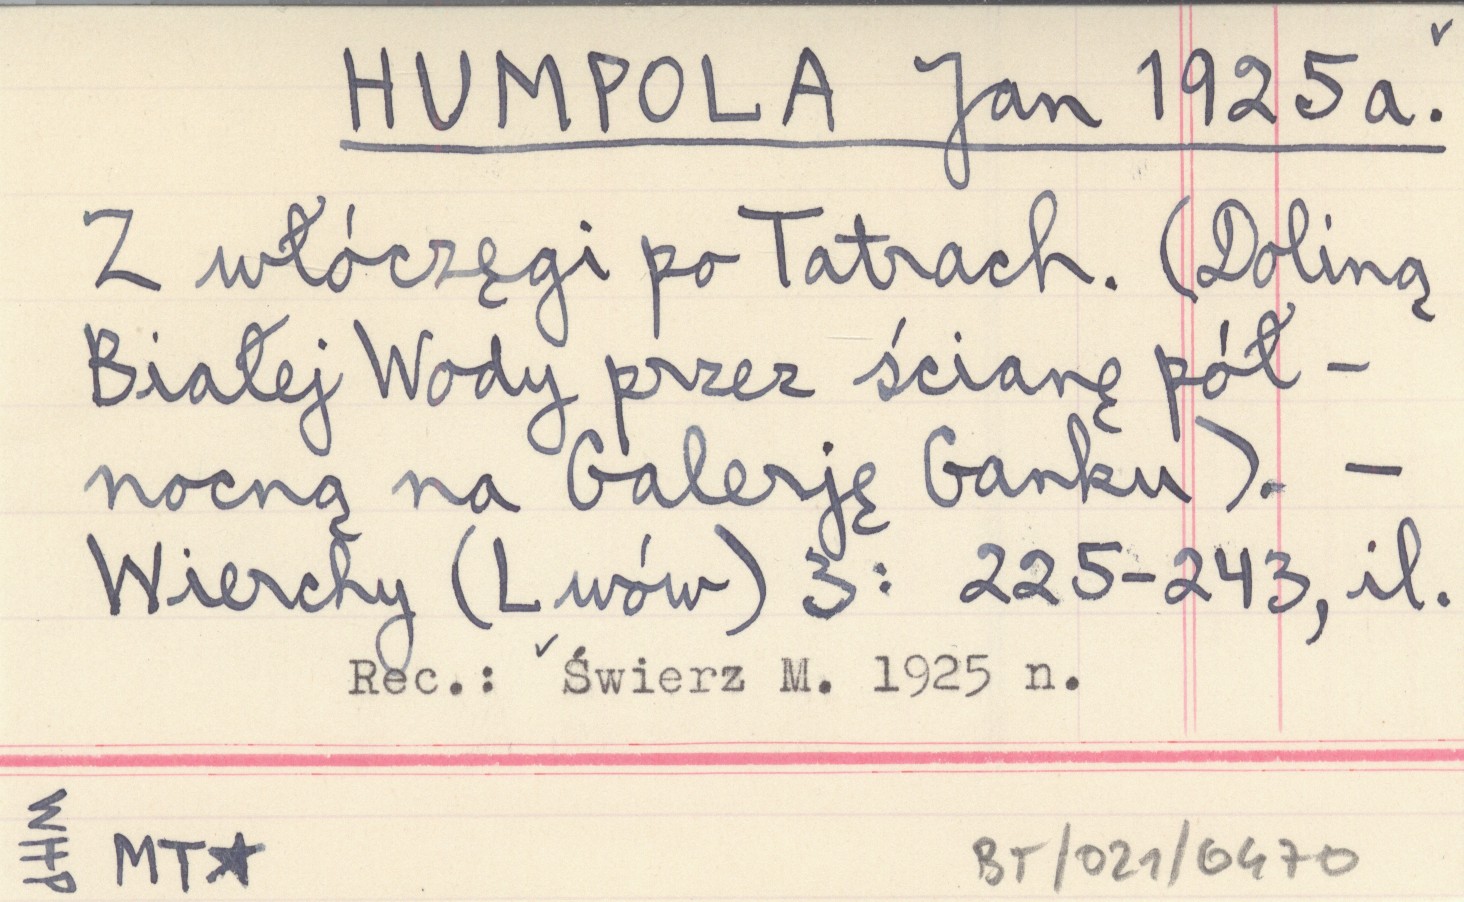 HUMPOLA Jan 1925a.
Z włóczęgi po Tatrach. (Doliną
Białej Wody przez ścianę pół-
nocną na Galerję Ganku). —
Wierchy (Lwów) 3: 225-243, il.
Rec.: ✓Świerz M. 1925 n.
WHP
MT★
BT/021/0470